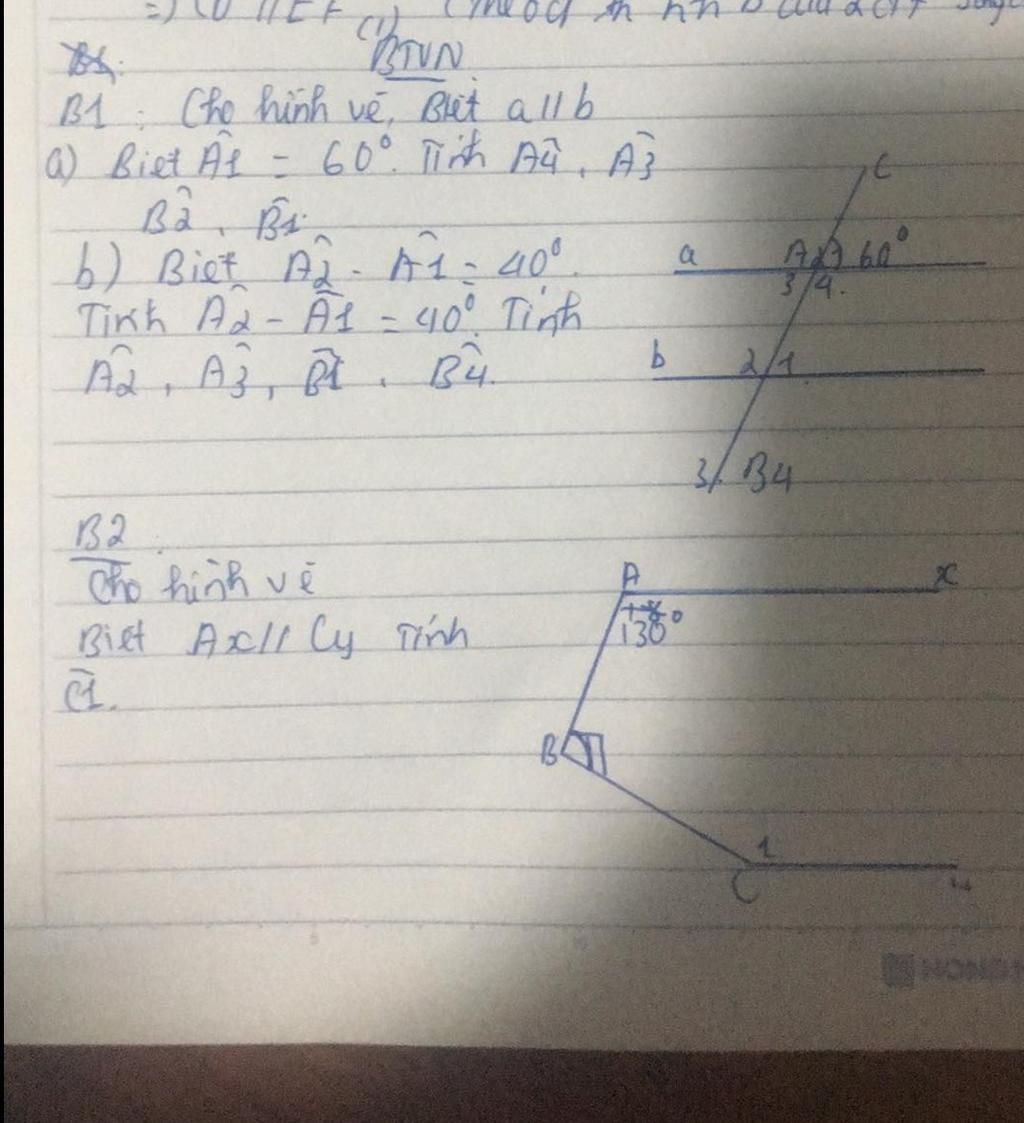 =) CD // EF (1)
BTVN
B1 : Cho hình vẽ, Biết a // b
a) Biết Â1 = 60° Tính Â4, Â3
B̂2, B̂1.
b) Biết Â2 - Â1 = 40°.
Tính Â2 - Â1 = 40°. Tính
Â2, Â3, B̂1, B̂4.
c
a A 2 1 60°
3 4.
b 2 1
3 B4
B2
Cho hình vẽ
Biết Ax // Cy Tính
Ĉ1.
A x
130°
B
1
C y